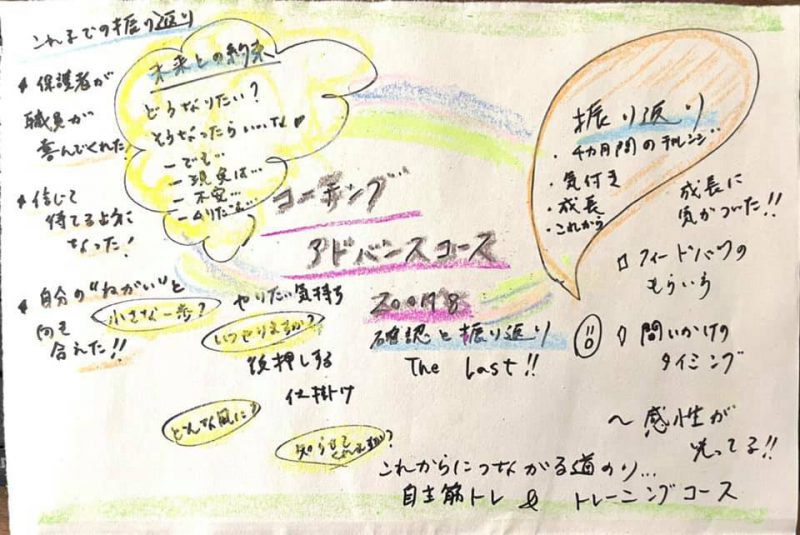 これまでの振り返り
保護者が
職員が
喜んでくれた!
信じて
待てるように
なった!
自分の"ねがい"と
向き
合えた!!
未来との約束
どうなりたい?
そうなったらいいな
ーでも…
ー現実は…
ー不安…
コーチング
アドバンスコース
ZOOM8
確認と振り返り
The Last!!
小さな一歩?
やりたい気持ち
いつやりますか?
後押しする
仕掛け
どんな風に?
知らせて
くれますか?
振り返り
・4カ月間のチャレンジ
・気付き
・成長
・これから
成長に
気がついた!!
フィードバックの
もらいろ
問いかけの
タイミング
〜感性が
光ってる!!
これからにつながる道のり…
自主筋トレ & トレーニングコース